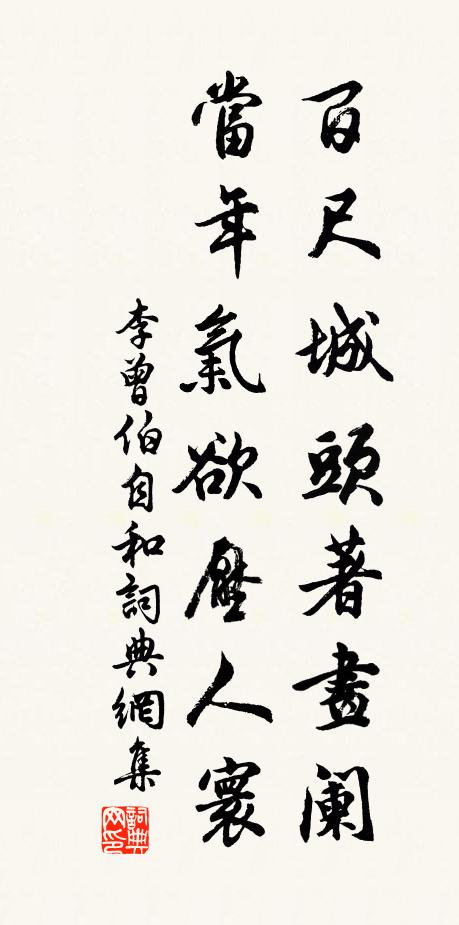 百尺城頭著畫阑
當年氣欲壓人寰
李曾伯自和詞典網集
詞典網印